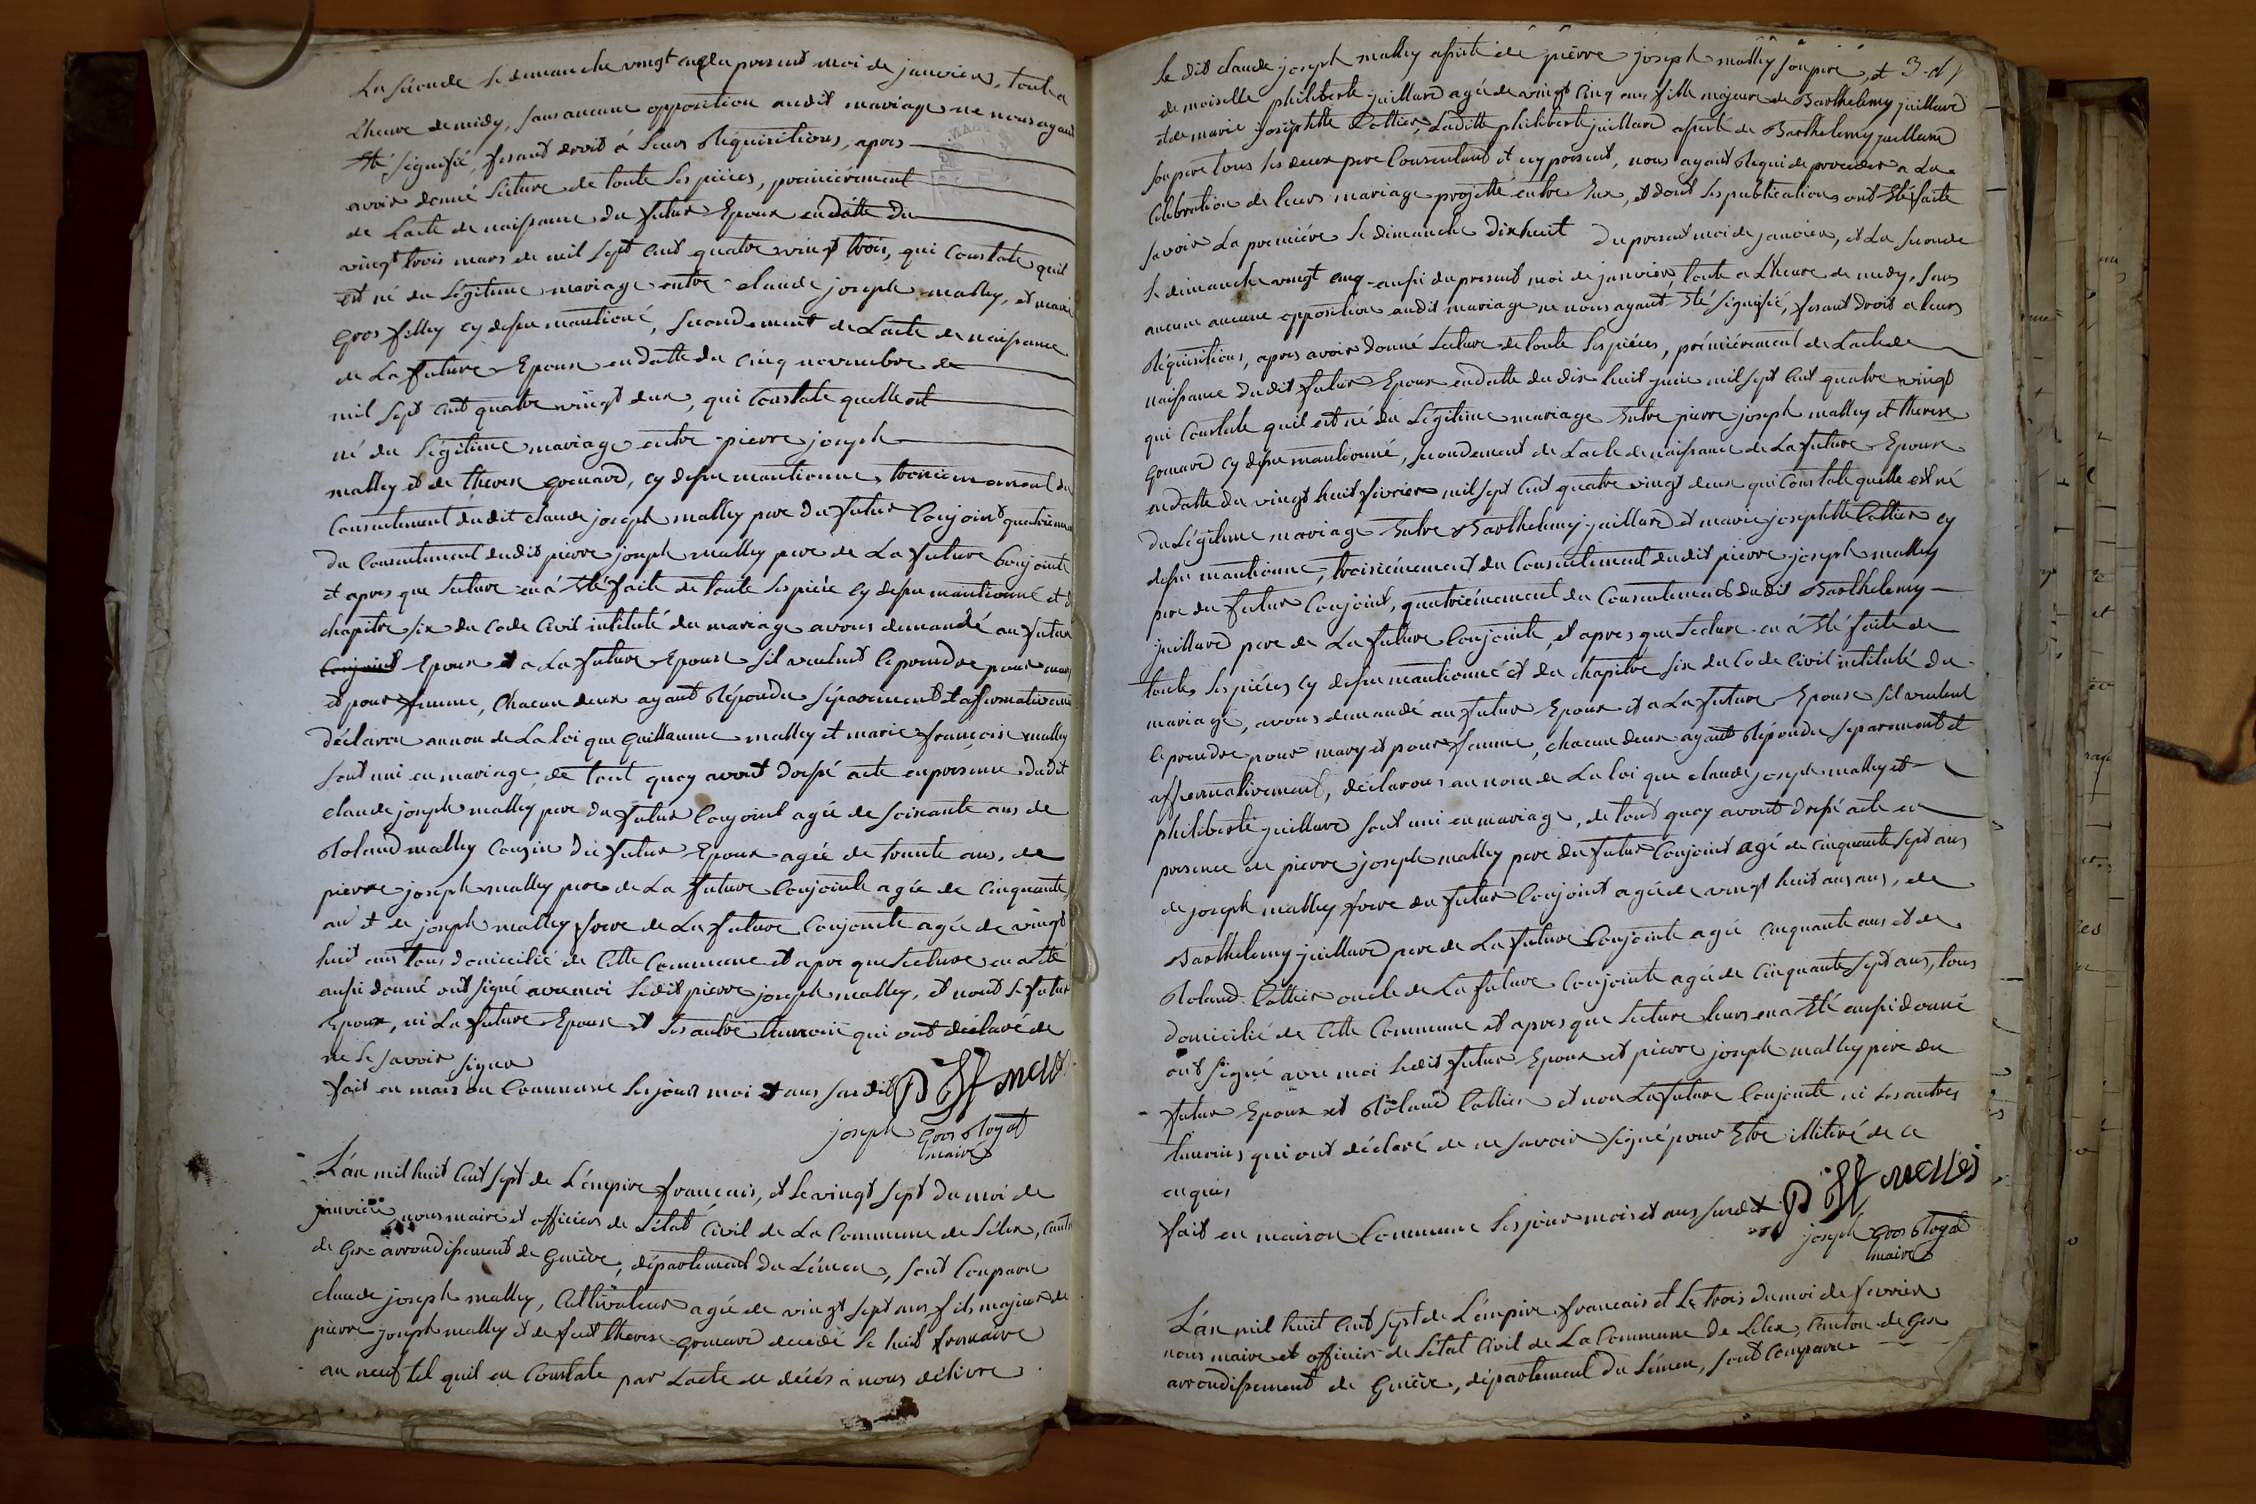 La seconde le dimanche vingt cinq du present moi de janvier, toute a
Lheure de midy, sans aucune opposition audit mariage ne nous ayant
Eté signifié, fesant droit à leurs Réquisitions, apres
avoir donné lecture de toute les pièces, premièrement
de Lacte de naissance du futur Epoux en datte du
vingt trois mars de mil sept cent quatre vingt trois, qui Constate quil
est né du Légitime mariage entre claude joseph malley, et marie
gros filley cy dessu mantioné, secondement de Lacte de naissance
de La future Epouse en datte du cinq novembre de
mil sept cent quatre vingt deux, qui Constate quelle est
né du Légitime mariage entre pierre joseph
malley et de therese gomard, cy dessu mantionné, troisiemement du
Consentement dudit claude joseph malley pere du futur Conjoint quatriememe
du Consentement dudit pierre joseph malley pere de La future Conjointe
et apres que lecture en à Eté faite de toute les pièce cy dessu mantionné et d
chapitre six du Code Civil intitulé du mariage avons demandé au futur
Conjoint Epoux et a La future Epouse sil veulent ce prendre pour mary
et pour femme, Chacun deux ayant Répondu séparément et affirmativeme
déclaron au nom de La loi que Guillaume malley et marie françoise malley
sont uni en mariage, de tout quoy avont dressé acte en presence dudit
claude joseph malley pere du futur Conjoint agée de soixante ans de
Roland malley Couzin du futur Epoux agée de trente ans, de
pierre joseph malley pere de La future Conjointe agée de Cinquante
an et de joseph malley frere de La future Conjointe agée de vingt
huit ans tous domicilié de Cette Commune et apre que lecture en a Eté
aussi donné ont signé avec moi ledit pierre joseph malley, et nont le futur
Epoux, ni La future Epouse et les autre temoin qui ont déclaré de
ne le savoir signer
fait en maison Commune les jours moi et ans susdit
joseph gros Royat
maire
L'an mil huit Cent sept de L'empire français, et le vingt sept du moi de
janvier nous maire et officier de Létat Civil de La Commune de Lelex, canto
de Gex arrondissement de Genève, département du Léman, sont Comparu
claude joseph malley, Cultivateur agée de vingt sept ans fils majeur de
pierre joseph malley et de feut therese gomard decedé le huit frimaire
an neuf tel quil en Constate par Lacte de décés à nous délivre
le dit claude joseph malley assisté de pierre joseph malley son pere, et
demoiselle philiberte juillard agée de vingt Cinq ans fille majeure de Barthelemy juillard
et de marie josephtte Cottier, Laditte philiberte juillard assisté de Barthelemy juillard
son pere tous les deux pere Consentant et cy present, nous ayant Requi de proceder a La
Célébration de leurs mariage projetté entre Eux, et dont les publications ont Eté faite
savoir La premiére le dimanche dixhuit du present moi de janvier, et La seconde
le dimanche vingt cinq aussi du present moi de janvier, toute a Lheure de midy, sans
aucune aucune opposition audit mariage ne nous ayant Eté signifié, fesant droit a leurs
Réquisitions, apres avoir donné lecture de toute les piéces, prémièrement de Lacte de
naissance dudit futur Epoux en datte du dix huit juin mil sept Cent quatre vingt
qui Constate quil est né du Légitime mariage Entre pierre joseph malley et therese
gomard cy dessu mantionné, secondement de Lacte de naissance de La future Epouse
en datte du vingt huit fevrier mil sept Cent quatre vingt deux qui Constate quelle est né
du Légitime mariage Entre Barthelemy juillard et marie josephtte Cottier cy
dessu mantionné, troisiémement du Consentement dudit pierre joseph malley
pere du futur Conjoint, quatriémement du Consentement dudit Barthelemy
juillard pere de La future Conjointe, et apres que lecture en à Eté faite de
toutes les piéces cy dessu mantionné et du chapitre six du Code Civil intitulé du
mariage, avons demandé au futur Epoux et a La future Epouse sil veulent
ce prendre pour mary et pour femme, chacun deux ayant Répondu separement et
affirmativement, déclarons au nom de La loi que claude joseph malley et
philiberte juillard sont uni en mariage, de tout quoy avont dressé acte en
presence de pierre joseph malley pere du futur Conjoint agé de cinquante sept ans
de joseph malley frere du futur Conjoint agée de vingt huit ans ans, de
Barthelemy juillard pere de La future Conjointe agée cinquante ans et de
Roland Cottier oncle de La future Conjointe agée de cinquante sept ans, tous
domicilié de Cette Commune et apres que lecture leurs en a Eté aussi donné
ont signé avec moi ledit futur Epoux et pierre joseph malley pere du
futur Epoux et Roland Cottier et non La future Conjointe ni les autres
temoins qui ont déclaré de ne savoir signé pour Etre illitéré de ce
enquis
fait en maison Commune les jour mois et ans susdit
joseph gros Royat
maire
L'an mil huit Cent sept de L'empire francais et Le trois du moi de fevrier
nous maire et officier de Létat Civil de La Commune de Lelex, Canton de Gex
arrondissement de Genève, département du Léman, sont Comparu